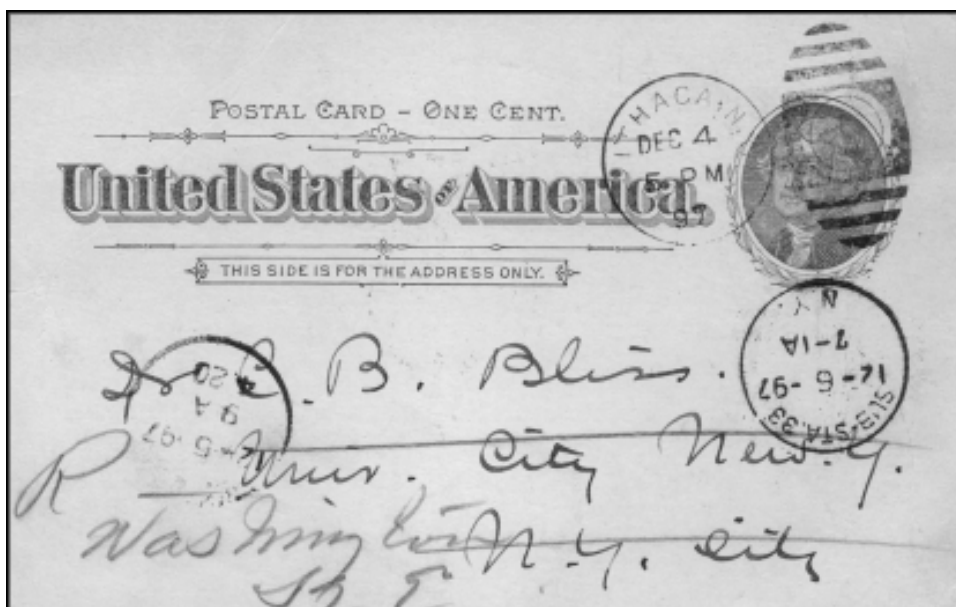 POSTAL CARD - ONE CENT.
United States of America.
THIS SIDE IS FOR THE ADDRESS ONLY.
THACA, N.
DEC 4
5 PM
97
N.Y.
7-1A
12-6-97
STA. 33
20
9 A
12-5-97
Dr. C. B. Bliss.
R Univ. City New. Y.
Washington N. Y. City
Sq E